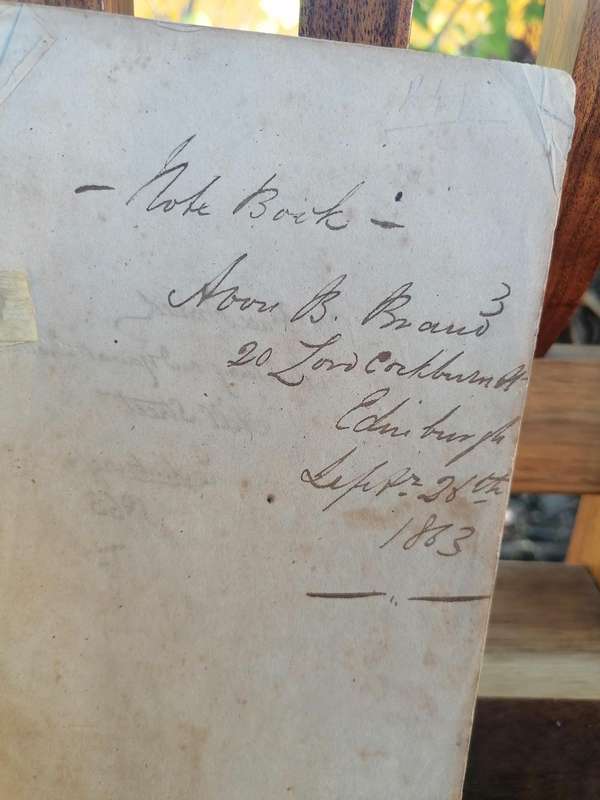 - Note Book -
B. Brand
20 Lord Cockburn St
Edinburgh
Septr. 28th
1863